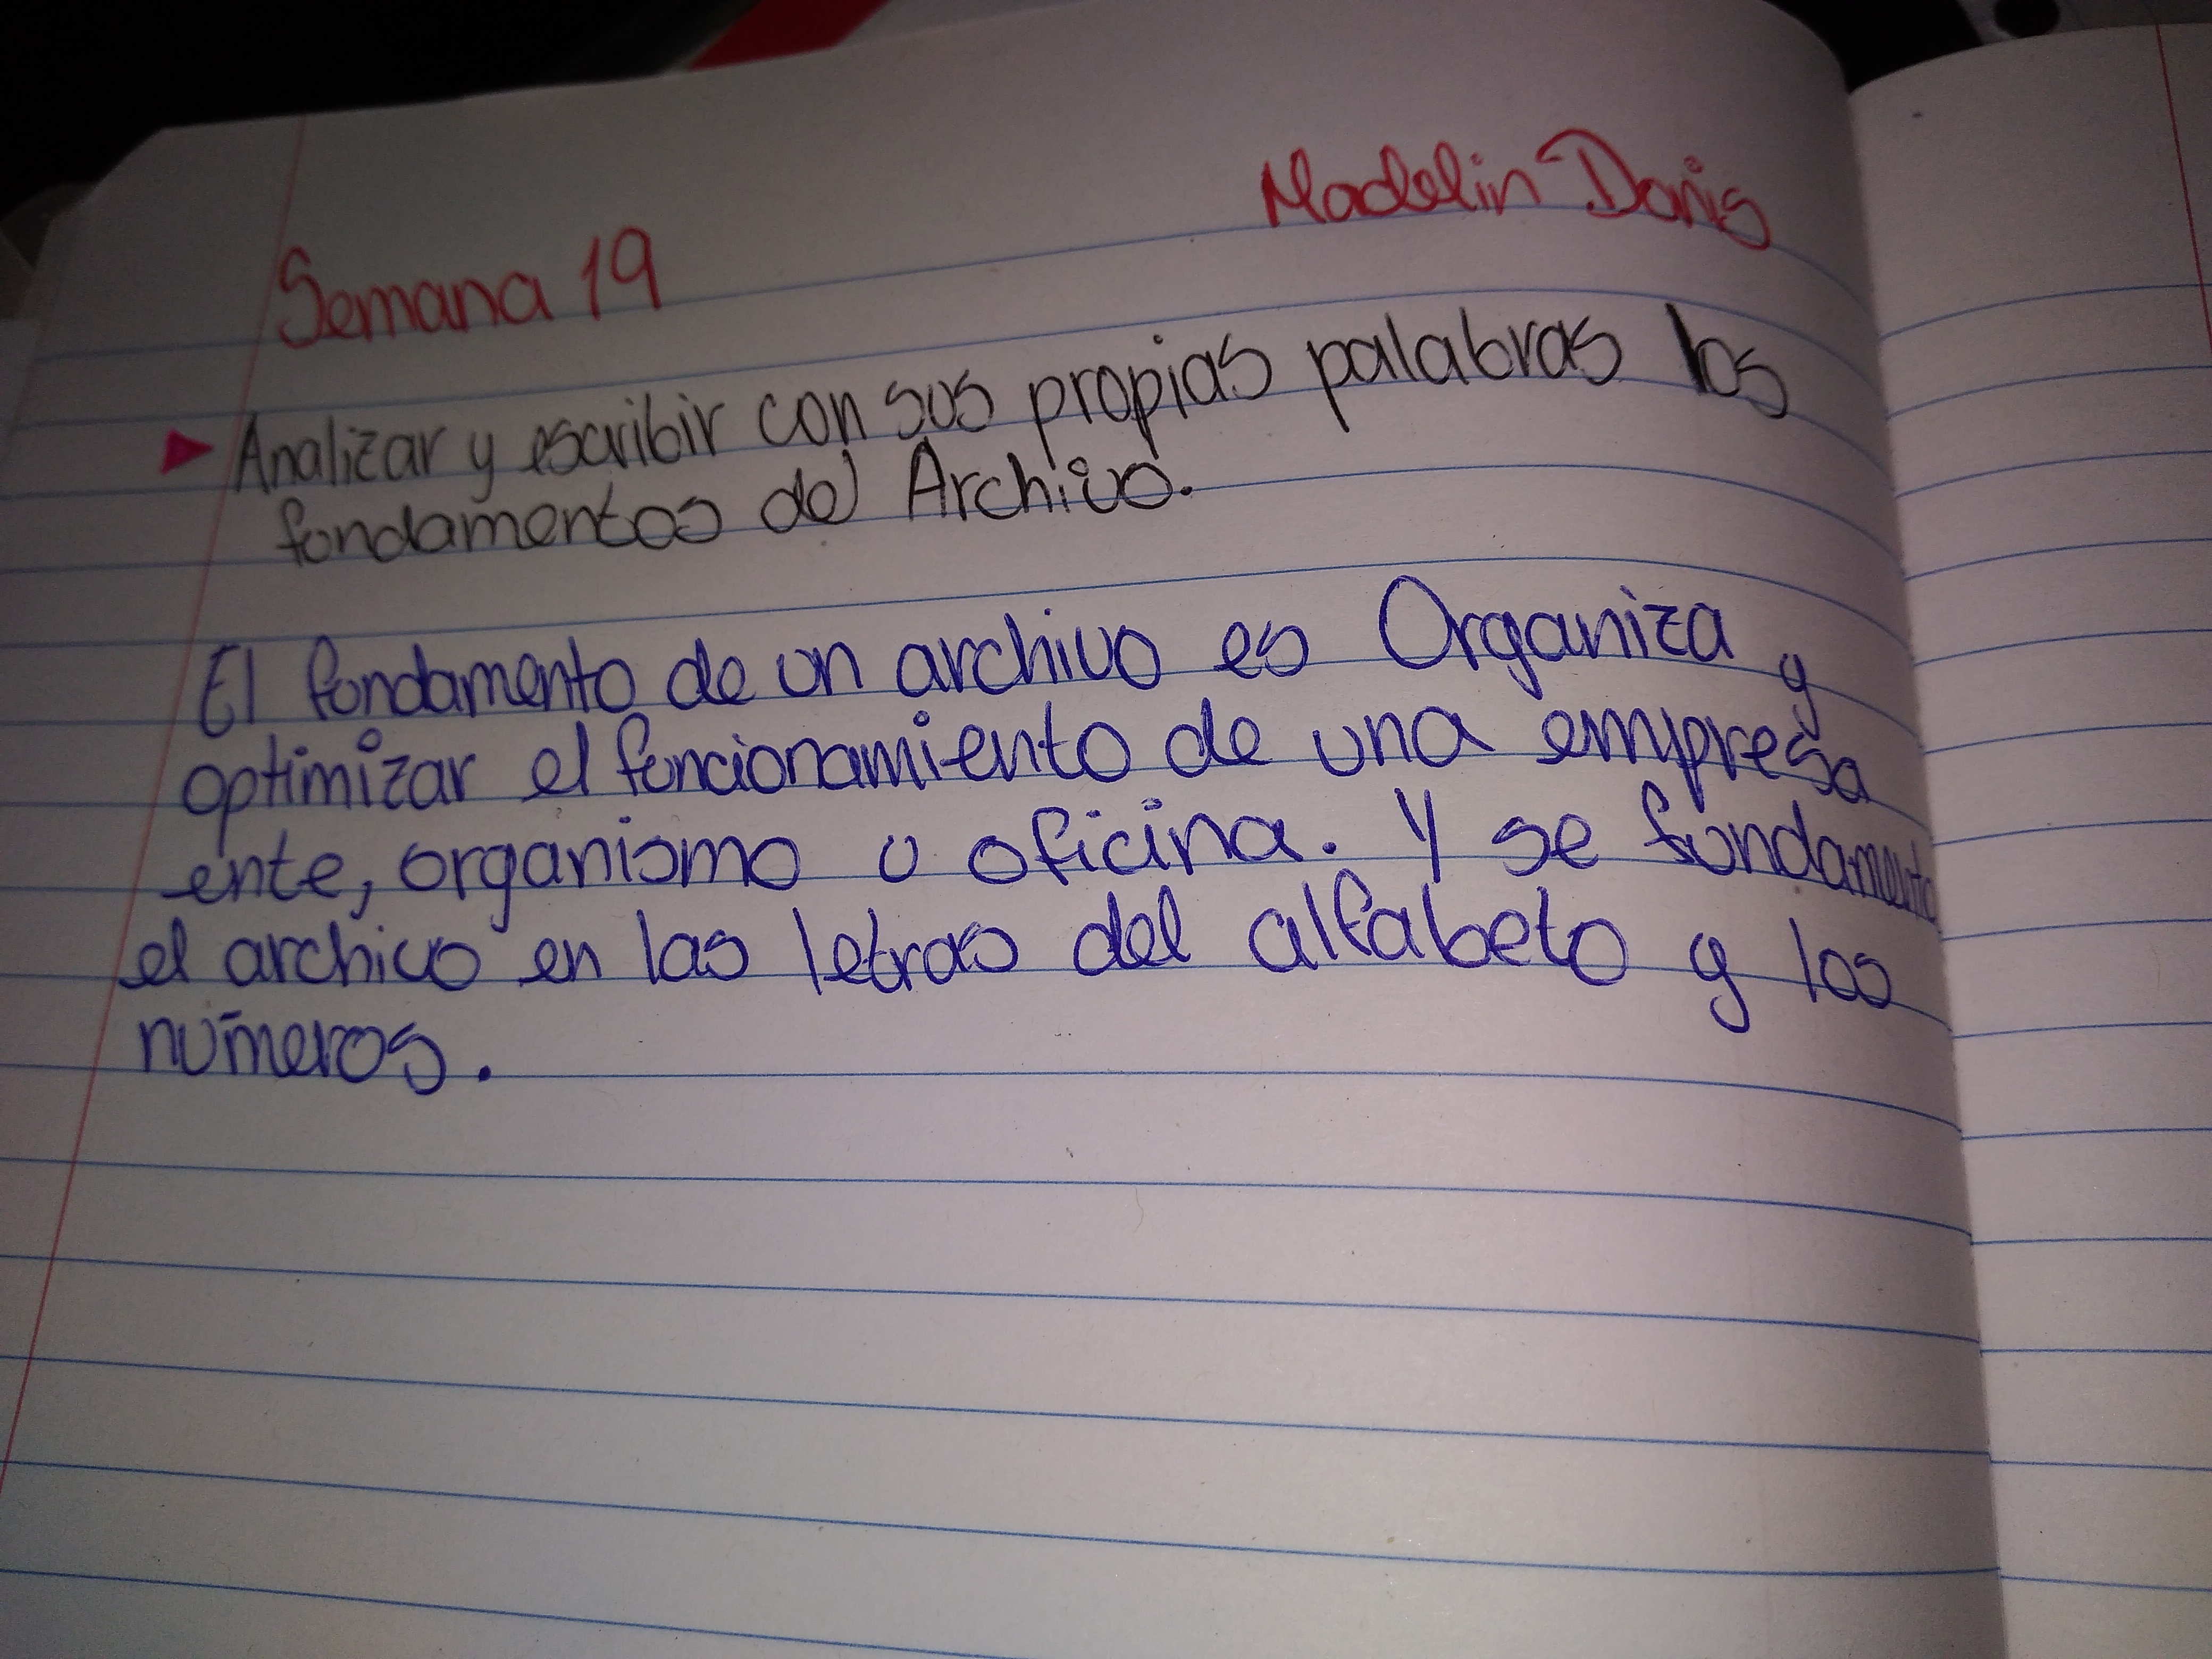 Madelin Danis
Semana 19
Analizar y escribir con sus propias palabras los
fundamentos del Archivo.
El fundamento de un archivo es Organiza y
optimizar el funcionamiento de una empresa
ente, organismo u oficina. Y se fundamenta
el archivo en las letras del alfabeto y los
números.